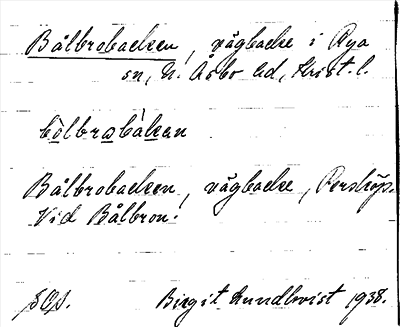 Bålbrobacken, vägbacke i Rya
sn, N. Åsbo hd, Krist. l.
bòlbrabàkan
Bålbrobacken, vägbacke, Perstorp.
Vid Bålbron.
Birgit Lundkvist 1938.